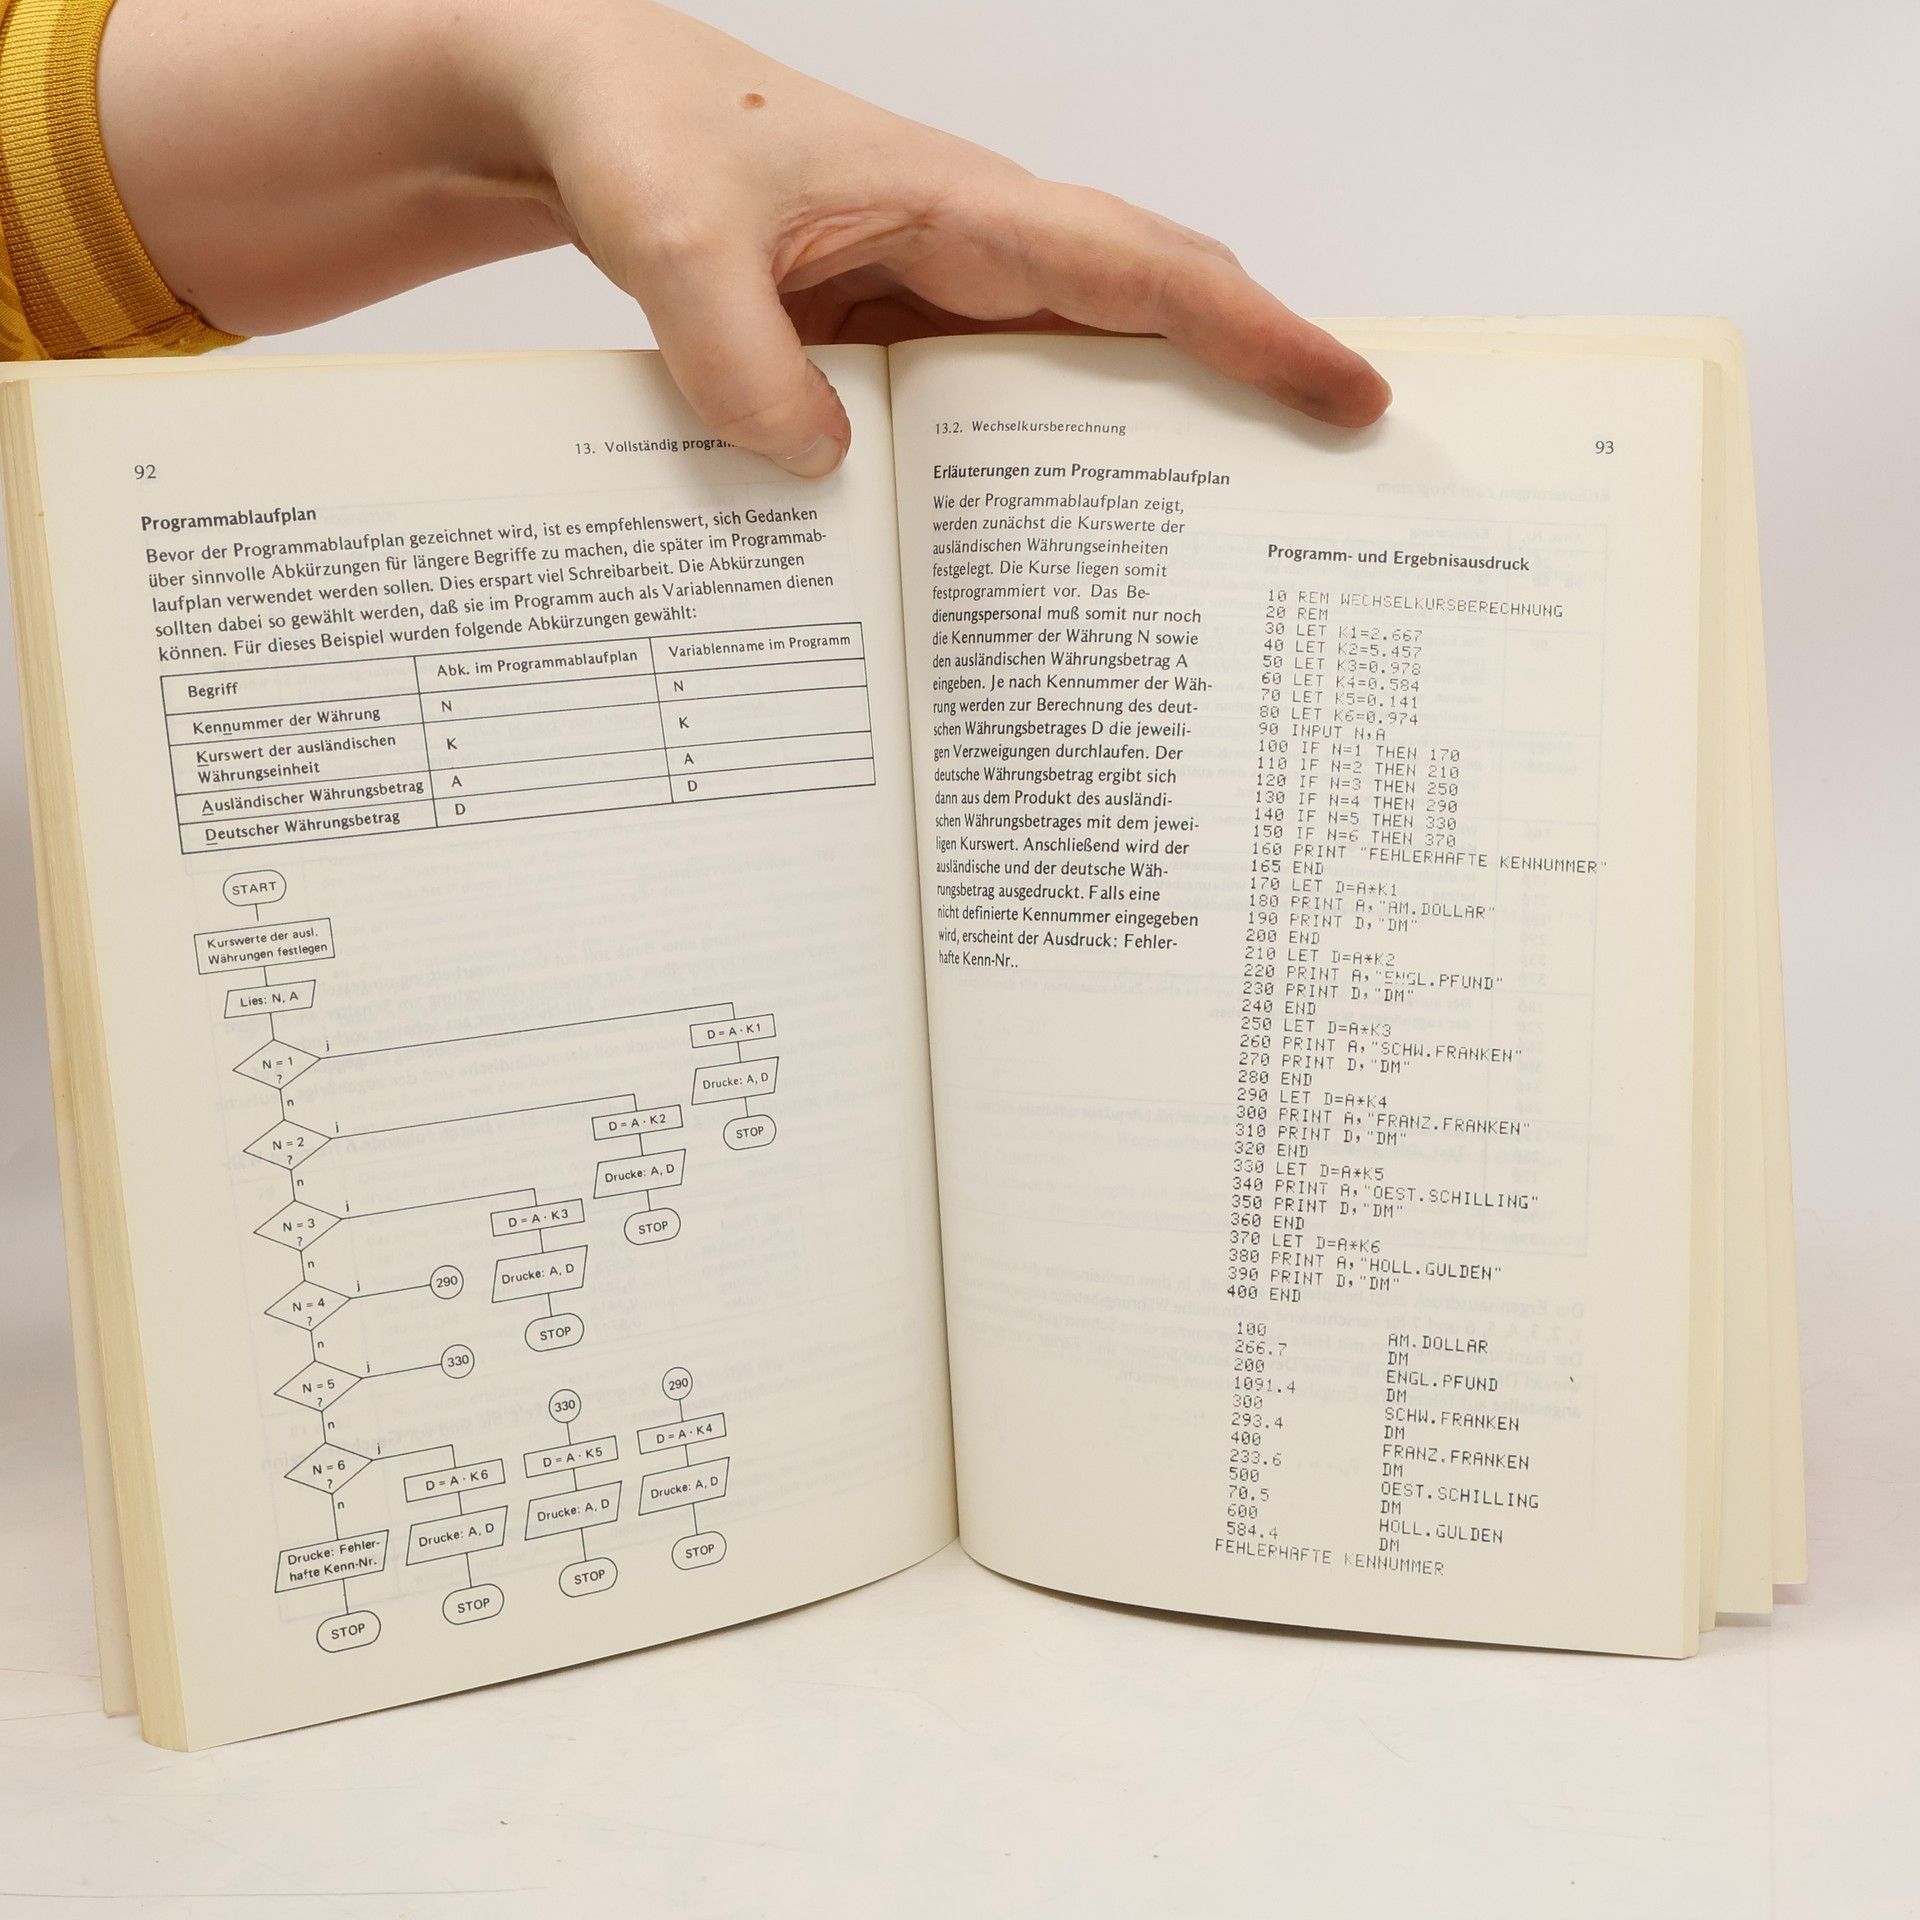 92
13. Vollständig
Programmablaufplan
Bevor der Programmablaufplan gezeichnet wird, ist es empfehlenswert, sich Gedanken
über sinnvolle Abkürzungen für längere Begriffe zu machen, die später im Programmab-
laufplan verwendet werden sollen. Dies erspart viel Schreibarbeit. Die Abkürzungen
sollten dabei so gewählt werden, daß sie im Programm auch als Variablennamen dienen
können. Für dieses Beispiel wurden folgende Abkürzungen gewählt:
Begriff Abk. im Programmablaufplan Variablenname im Programm
Kennummer der Währung N N
Kurswert der ausländischen
Währungseinheit K K
Ausländischer Währungsbetrag A A
Deutscher Währungsbetrag D D
START
Kurswerte der ausl.
Währungen festlegen
Lies: N, A
N = 1
?
j
n
D = A · K1
Drucke: A, D
STOP
N = 2
?
j
n
D = A · K2
Drucke: A, D
STOP
N = 3
?
j
n
D = A · K3
Drucke: A, D
STOP
N = 4
?
j
n
290
N = 5
?
j
n
330
N = 6
?
j
n
D = A · K6
Drucke: A, D
STOP
330
D = A · K5
Drucke: A, D
STOP
290
D = A · K4
Drucke: A, D
STOP
Drucke: Fehler-
hafte Kenn-Nr.
STOP
13.2. Wechselkursberechnung
93
Erläuterungen zum Programmablaufplan
Wie der Programmablaufplan zeigt,
werden zunächst die Kurswerte der
ausländischen Währungseinheiten
festgelegt. Die Kurse liegen somit
festprogrammiert vor. Das Be-
dienungspersonal muß somit nur noch
die Kennummer der Währung N sowie
den ausländischen Währungsbetrag A
eingeben. Je nach Kennummer der Wäh-
rung werden zur Berechnung des deut-
schen Währungsbetrages D die jeweili-
gen Verzweigungen durchlaufen. Der
deutsche Währungsbetrag ergibt sich
dann aus dem Produkt des ausländi-
schen Währungsbetrages mit dem jewei-
ligen Kurswert. Anschließend wird der
ausländische und der deutsche Wäh-
rungsbetrag ausgedruckt. Falls eine
nicht definierte Kennummer eingegeben
wird, erscheint der Ausdruck: Fehler-
hafte Kenn-Nr..
Programm- und Ergebnisausdruck
10 REM WECHSELKURSBERECHNUNG
20 REM
30 LET K1=2.667
40 LET K2=5.457
50 LET K3=0.978
60 LET K4=0.584
70 LET K5=0.141
80 LET K6=0.974
90 INPUT N,A
100 IF N=1 THEN 170
110 IF N=2 THEN 210
120 IF N=3 THEN 250
130 IF N=4 THEN 290
140 IF N=5 THEN 330
150 IF N=6 THEN 370
160 PRINT "FEHLERHAFTE KENNUMMER"
165 END
170 LET D=A*K1
180 PRINT A,"AM.DOLLAR"
190 PRINT D,"DM"
200 END
210 LET D=A*K2
220 PRINT A,"ENGL.PFUND"
230 PRINT D,"DM"
240 END
250 LET D=A*K3
260 PRINT A,"SCHW.FRANKEN"
270 PRINT D,"DM"
280 END
290 LET D=A*K4
300 PRINT A,"FRANZ.FRANKEN"
310 PRINT D,"DM"
320 END
330 LET D=A*K5
340 PRINT A,"OEST.SCHILLING"
350 PRINT D,"DM"
360 END
370 LET D=A*K6
380 PRINT A,"HOLL.GULDEN"
390 PRINT D,"DM"
400 END
100 AM.DOLLAR
266.7 DM
200 ENGL.PFUND
1091.4 DM
300 SCHW.FRANKEN
293.4 DM
400 FRANZ.FRANKEN
233.6 DM
500 OEST.SCHILLING
70.5 DM
600 HOLL.GULDEN
584.4 DM
FEHLERHAFTE KENNUMMER